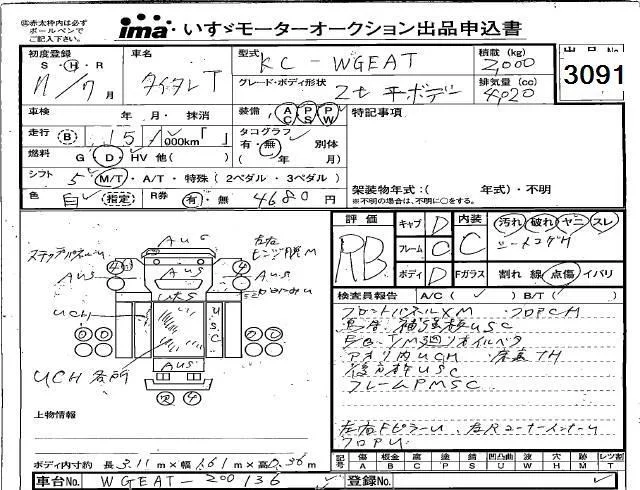 ㊟赤太枠内は必ず
ボールペンで
ご記入下さい。
ima いすゞモーターオークション出品申込書
初度登録 車名 型式 KC-WGEAT 積載 (kg) 2,000 出品No 3091
S・H・R 11/7月 タイタン T グレード・ボディ形状 2t 平ボデー 排気量 (cc) 4,020
車検 年 月・抹消 装備 AC PS PW 特記事項
走行 B 15 000km「 」 タコグラフ 有・無 別体
燃料 G D HV 他( ) ( 年 月)
シフト 5 M/T・A/T・特殊 (2ペダル・3ペダル) 架装物年式:( 年式)・不明
色 白 (指定) R券 有・無 4680 円 ※不明の場合は、不明に○をする。
評価 RB キャブ D 内装 C 汚れ 破れ ヤニ スレ
フレーム C シートコゲH
ボディ D Fガラス 割れ 線 点傷 イバリ
検査員報告 A/C( ✓ ) B/T( ✓ )
フロントパネルXM フロアCH
補強板USC
E/G、T/M廻りオイルベタ
アオリ内UCH 床裏7H
USC
フレームPMSC
左右Fピラーu 左Rコーナーインナーu
フロアu
AuS
AuS
AuS
AuS
UCH
USC
AuS
UCH 各所
上物情報
ボディ内寸約 長 3.11m×幅 1.61m×高 0.36m
記号 傷A 板金B 腐C 塗P 錆S 凹凸曲U 波W 穴H 跡M レツ割T
車台No. WGEAT-200136 登録No.